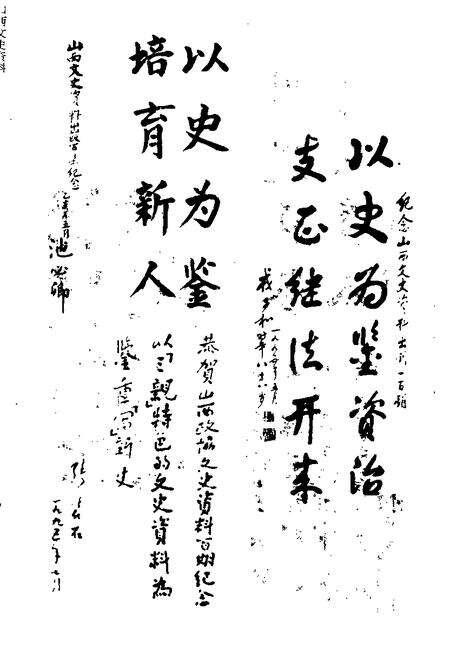 纪念山西文史资料出刊一百期
以史为鉴资治
支正继往开来
时年八十八岁
以史为鉴
培育新人
山西文史资料出版百期纪念
池必卿
恭贺山西政协文史资料百期纪念
以「三亲」特色的文史资料为
鉴重写新史
一九九五年七月
山西文史资料